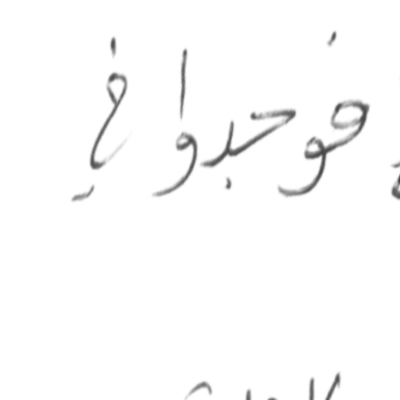 فوجدوا في